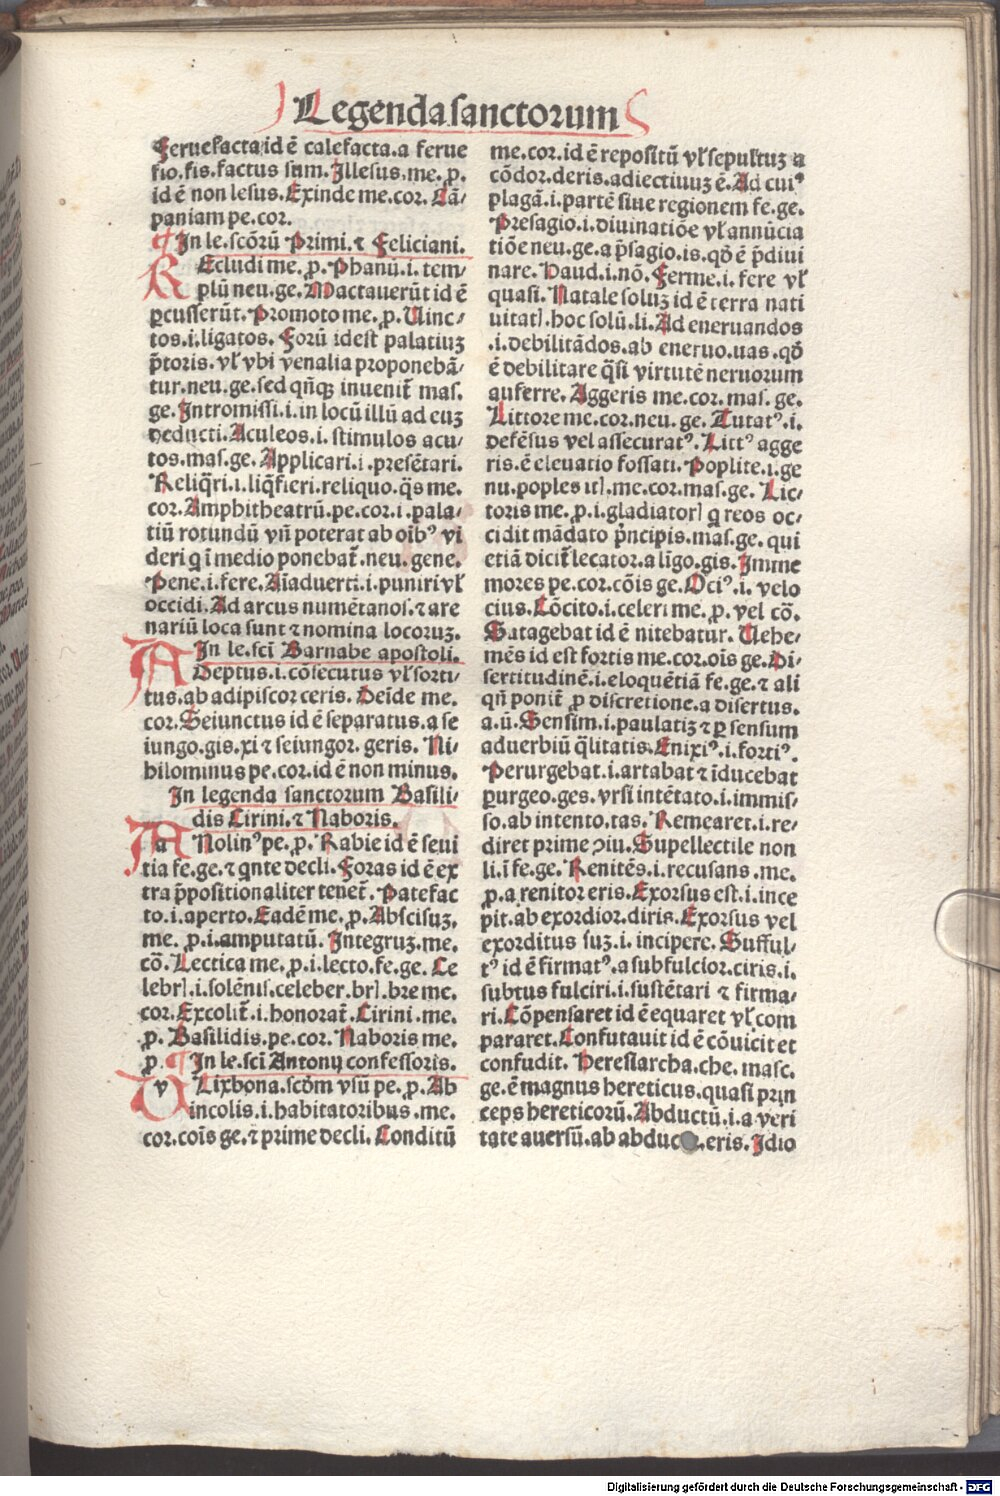 Legenda sanctorum
Feruefacta id ē calefacta. a ferue
fio. fis. factus sum. Illesus. me. ꝓ.
id ē non lesus. Exinde me. cor. Cā⸗
paniam pe. cor.
¶ In le. scōrū Primi. ⁊ Feliciani.
REcludi me. ꝓ. Phanū. i. tem⸗
plū neu. ge. Mactauerūt id ē
ꝑcusserūt. Promoto me. ꝓ. Uinc⸗
tos. i. ligatos. Forū id est palatiuꝫ
p̄toris. vł vbi venalia proponebā⸗
tur. neu. ge. sed qn̄qꝫ inuenit̄ mas.
ge. Intromissi. i. in locū illū ad euꝫ
deducti. Aculeos. i. stimulos acu⸗
tos. mas. ge. Applicari. i. presētari.
Reliq̄ri. i. liq̄fieri. reliquo. q̄s me.
cor. Amphitheatrū. pe. cor. i. pala⸗
tiū rotundū vn̄ poterat ab oībꝰ vi
deri q̇ i medio ponebat̄. neu. gene.
Pene. i. fere. Aīaduerti. i. puniri vł
occidi. Ad arcus numētanos. ⁊ are
nariū loca sunt ⁊ nomina locoruꝫ.
In le. sci̅ Barnabe apostoli.
ADeptus. i. cōsecutus vł sorti⸗
tus. ab adipiscor ceris. Deīde me.
cor. Seiunctus id ē separatus. a se
iungo. gis. xi ⁊ seiungor. geris. Ni⸗
hilominus pe. cor. id ē non minus.
In legenda sanctorum Basili⸗
dis Cirini. ⁊ Naboris.
ANolinꝰ pe. ꝓ. Rabie id ē seui
tia fe. ge. ⁊ qnte decli. Foras id ē ex
tra p̄positionaliter tenet̄. Patefac
to. i. aperto. Eadē me. ꝓ. Abscisuꝫ.
me. ꝓ. i. amputatū. Integruꝫ. me.
cō. Lectica me. ꝓ. i. lecto. fe. ge. Ce
lebrꝭ. i. solēnis. celeber. brꝭ. bre me.
cor. Excolit̄. i. honorat̄. Cirini. me.
ꝓ. Basilidis. pe. cor. Naboris me.
ꝓ. ¶ In le. sci̅ Antonij confessoris.
VLixbona. scōm vsū pe. ꝓ. Ab
incolis. i. habitatoribus. me.
cor. cōis ge. ⁊ prime decli. Conditū
me. cor. id ē repositū vł sepultuꝫ a
cōdor. deris. adiectiuuꝫ ē. Ad cuiꝰ
plagā. i. partē siue regionem fe. ge.
Presagio. i. diuinatiōe vł annūcia
tiōe neu. ge. a p̄sagio. is. qd̄ ē p̄diui
nare. Haud. i. nō. Ferme. i. fere vł
quasi. Natale soluꝫ id ē terra nati
uitatꝭ. hoc solū. li. Ad eneruandos
. i. debilitādos. ab eneruo. uas. qd̄
ē debilitare q̄si virtutē neruorum
auferre. Aggeris me. cor. mas. ge.
Littore me. cor. neu. ge. Tutatꝰ. i.
defēsus vel assecuratꝰ. Littꝰ agge
ris. ē eleuatio fossati. Poplite. i. ge
nu. poples itꝭ. me. cor. mas. ge. Lic⸗
toris me. ꝓ. i. gladiatorꝭ q reos oc⸗
cidit mādato p̄ncipis. mas. ge. qui
etiā dicit̄ lecator. a ligo. gis. Imme
mores pe. cor. cōis ge. Ociꝰ. i. velo
cius. Cōcito. i. celeri me. ꝓ. vel cō.
Satagebat id ē nitebatur. Uehe⸗
mēs id est fortis me. cor. oīs ge. Di⸗
sertitudinē. i. eloquētiā fe. ge. ⁊ ali
qn̄ ponit̄ ꝓ discretione. a disertus.
a. ū. Sensim. i. paulatiꝫ ⁊ ꝑ sensum
aduerbiū q̄litatis. Enixiꝰ. i. fortiꝰ.
Perurgebat. i. artabat ⁊ īducebat
ꝑurgeo. ges. vrsi intētato. i. immis⸗
so. ab intento. tas. Remearet. i. re⸗
diret prime ꝯiu. Supellectile non
li. i fe. ge. Renitēs. i. recusans. me.
ꝓ. a renitor eris. Exorsus est. i. ince
pit. ab exordior. diris. Exorsus vel
exorditus suꝫ. i. incipere. Sufful⸗
tꝰ id ē firmatꝰ. a subfulcior. ciris. i.
subtus fulciri. i. sustētari ⁊ firma⸗
ri. Cōpensaret id ē equaret vł com
pararet. Confutauit id ē cōuicit et
confudit. Heresiarcha. che. masc.
ge. ē magnus hereticus. quasi prin
ceps hereticorū. Abductū. i. a veri
tate auersū. ab abduc. eris. Idio
Digitalisierung gefördert durch die Deutsche Forschungsgemeinschaft - DFG